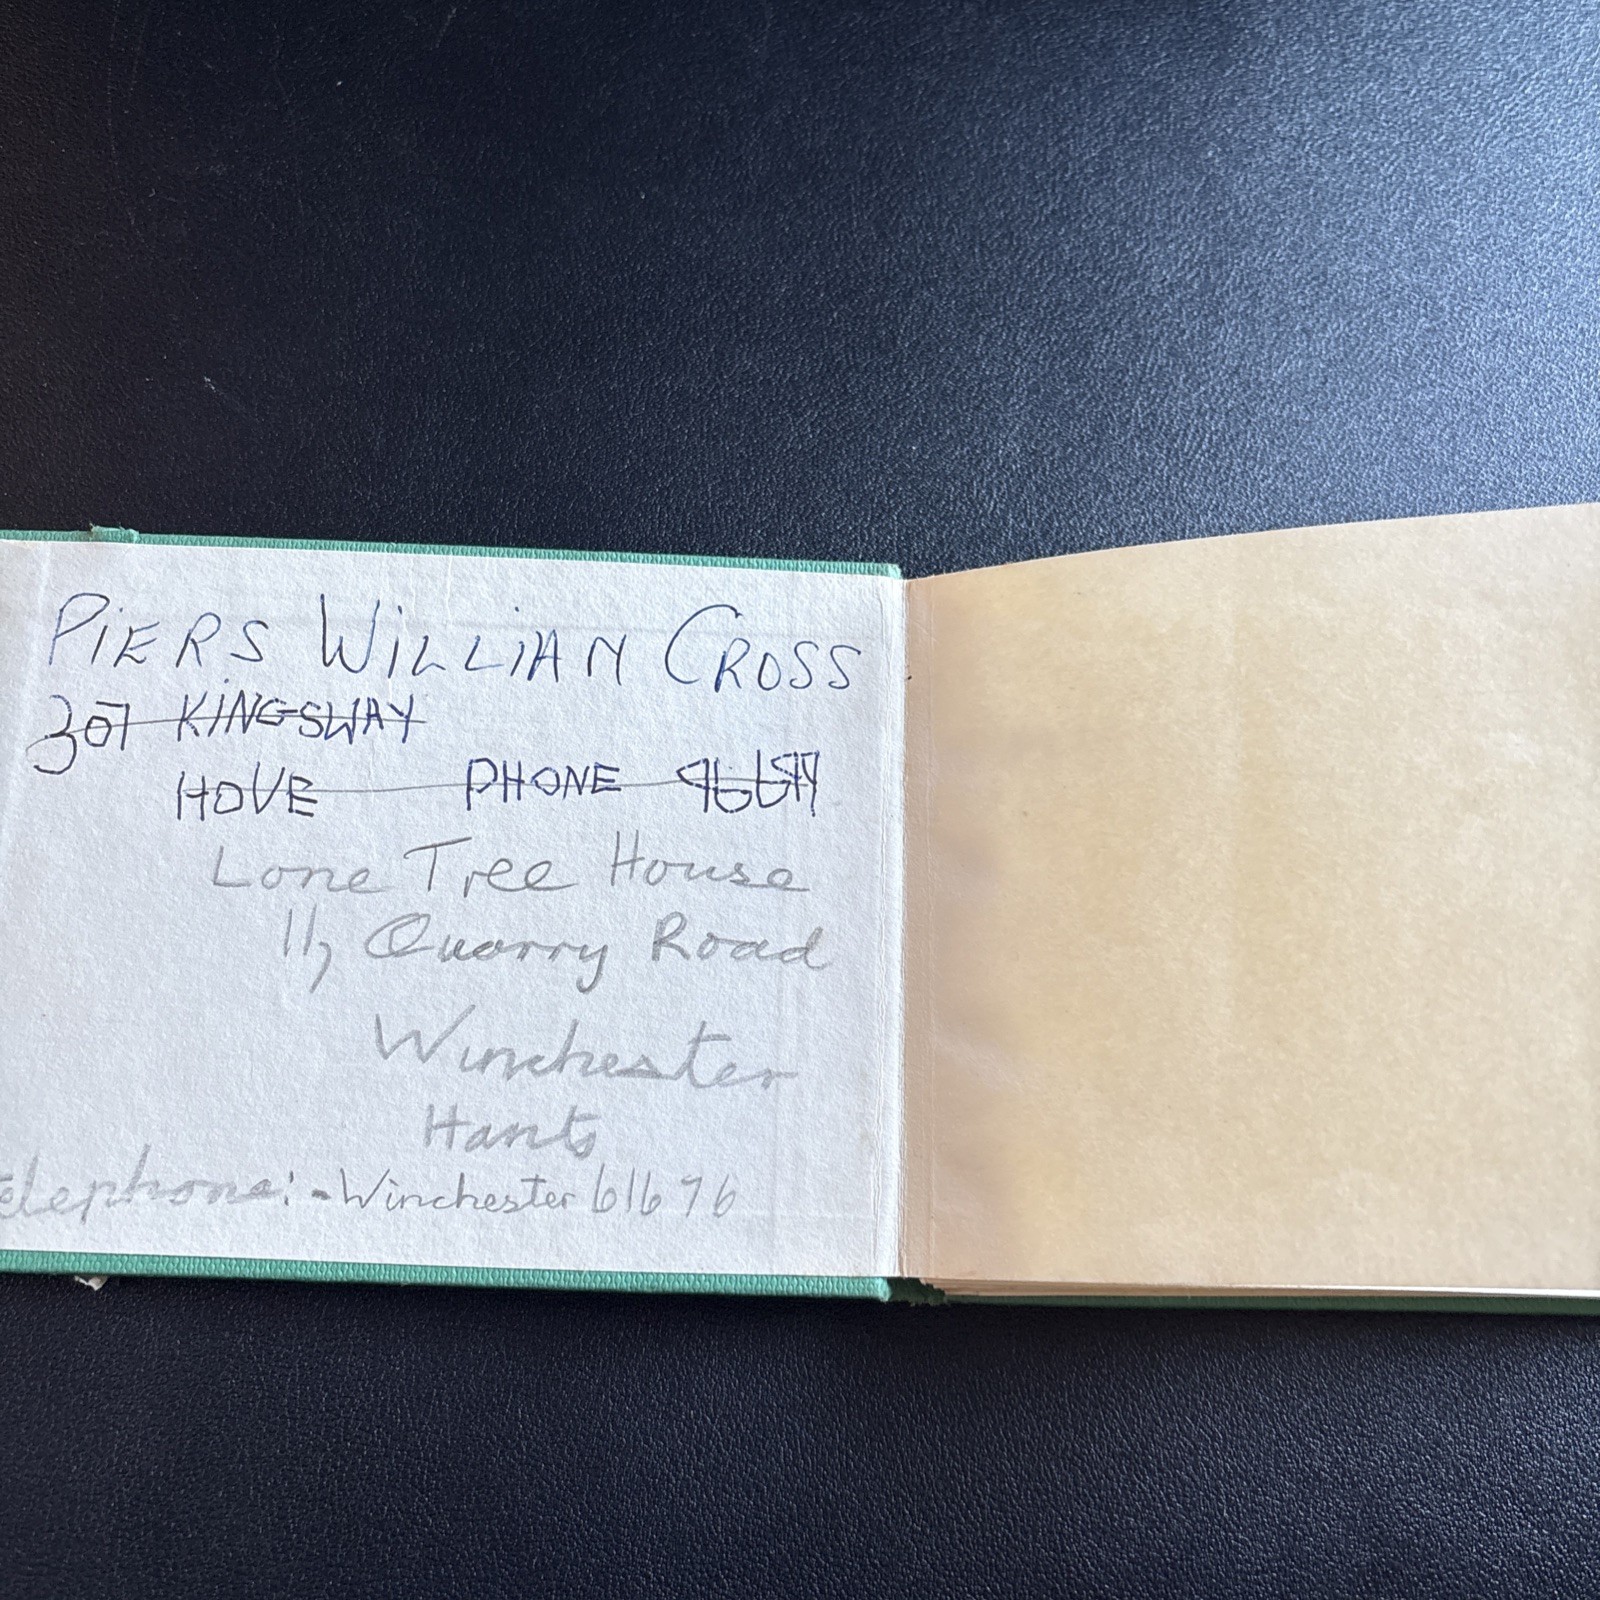 PIERS WILLIAM CROSS
307 KINGSWAY
HOVE PHONE
Lone Tree House
11, Quarry Road
Winchester
Hants
elephone:- Winchester 61676